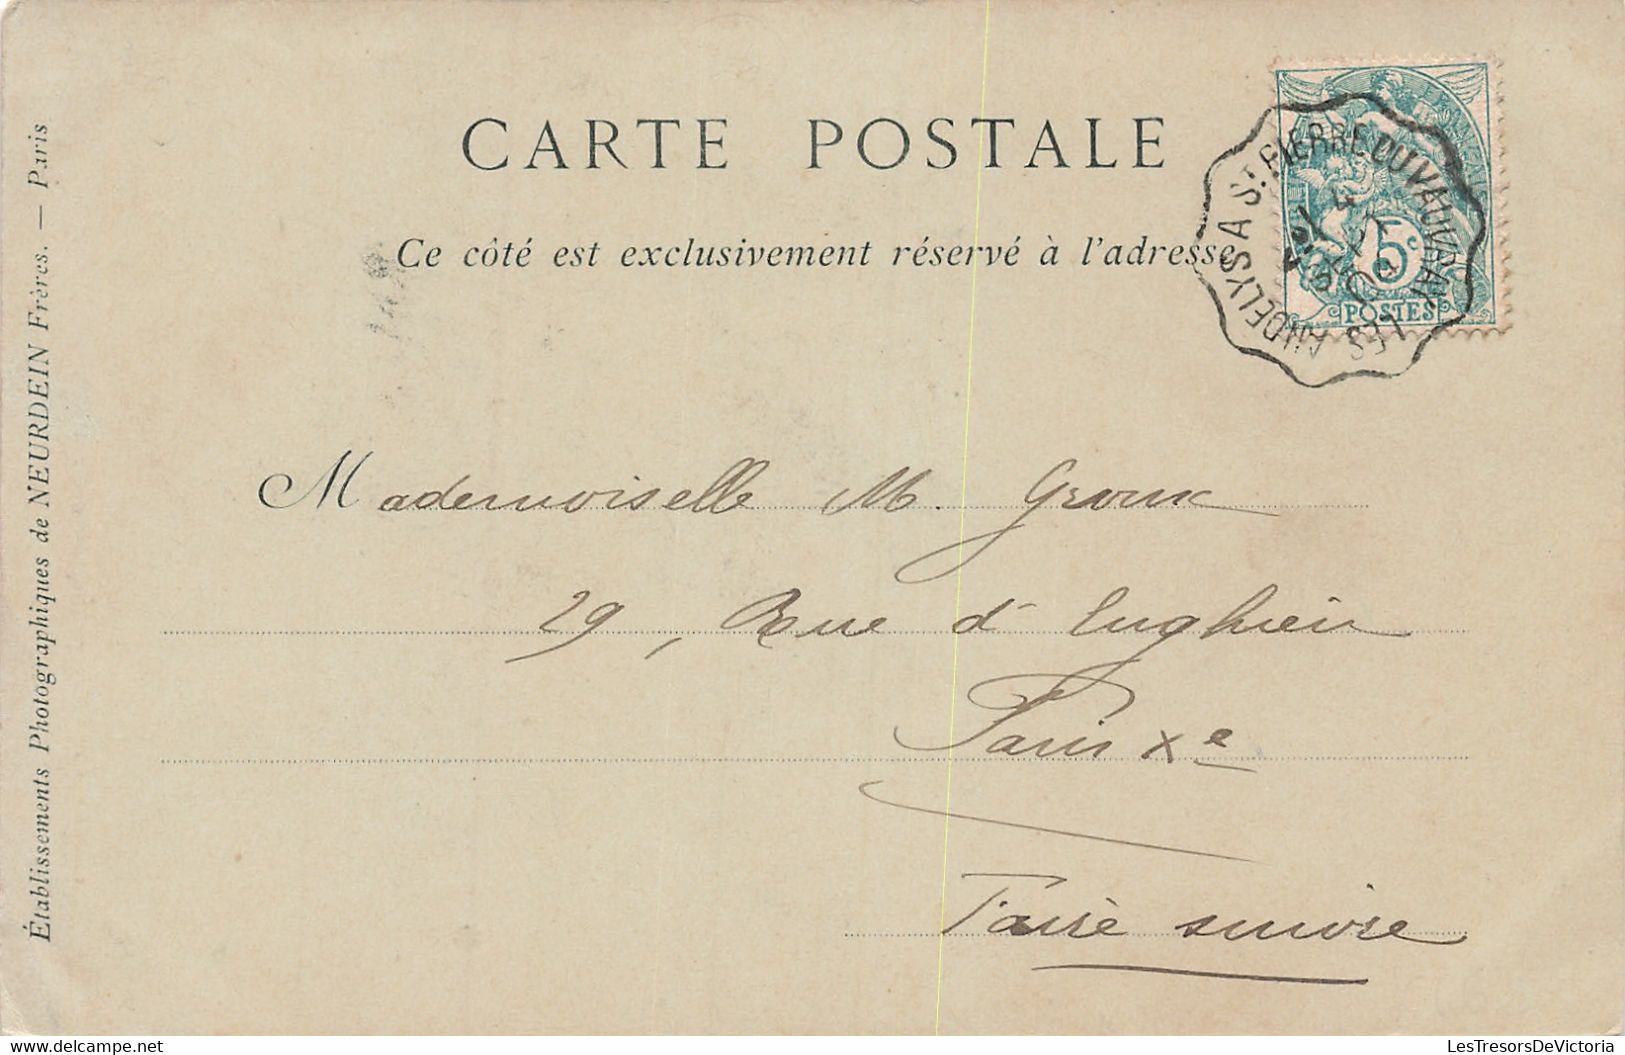 CARTE POSTALE
Ce côté est exclusivement réservé à l'adresse
LES ANDELYS A ST PIERRE DU VAUVRAY
5c
POSTES
Mademoiselle M. Groux
29, Rue d'Enghien
Paris Xe
Faire suivre
Établissements Photographiques de NEURDEIN Frères. — Paris
LesTresorsDeVictoria